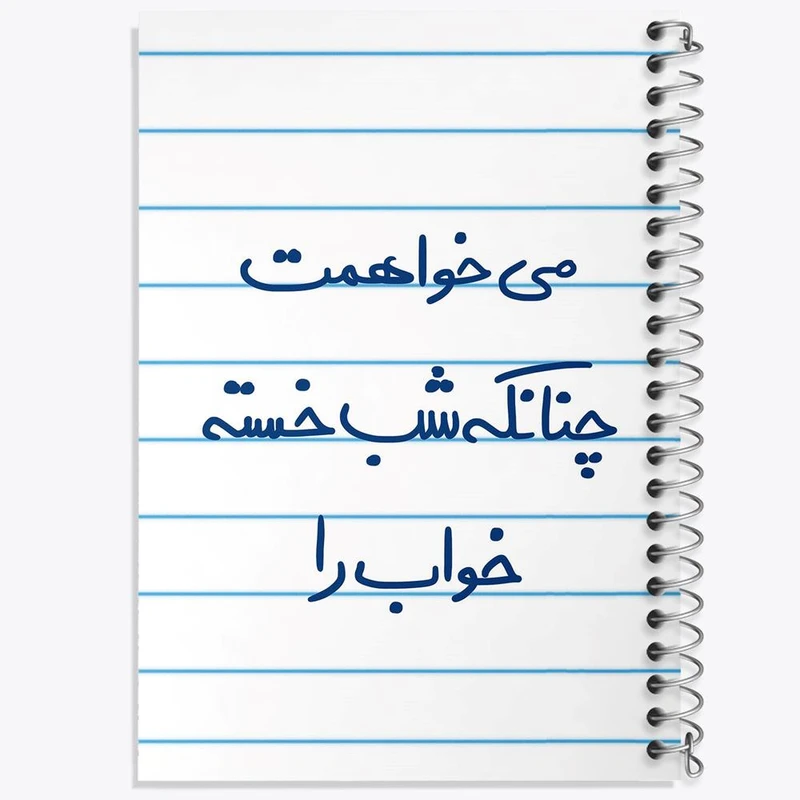 می خواهمت
چنانکه شب خسته
خواب را